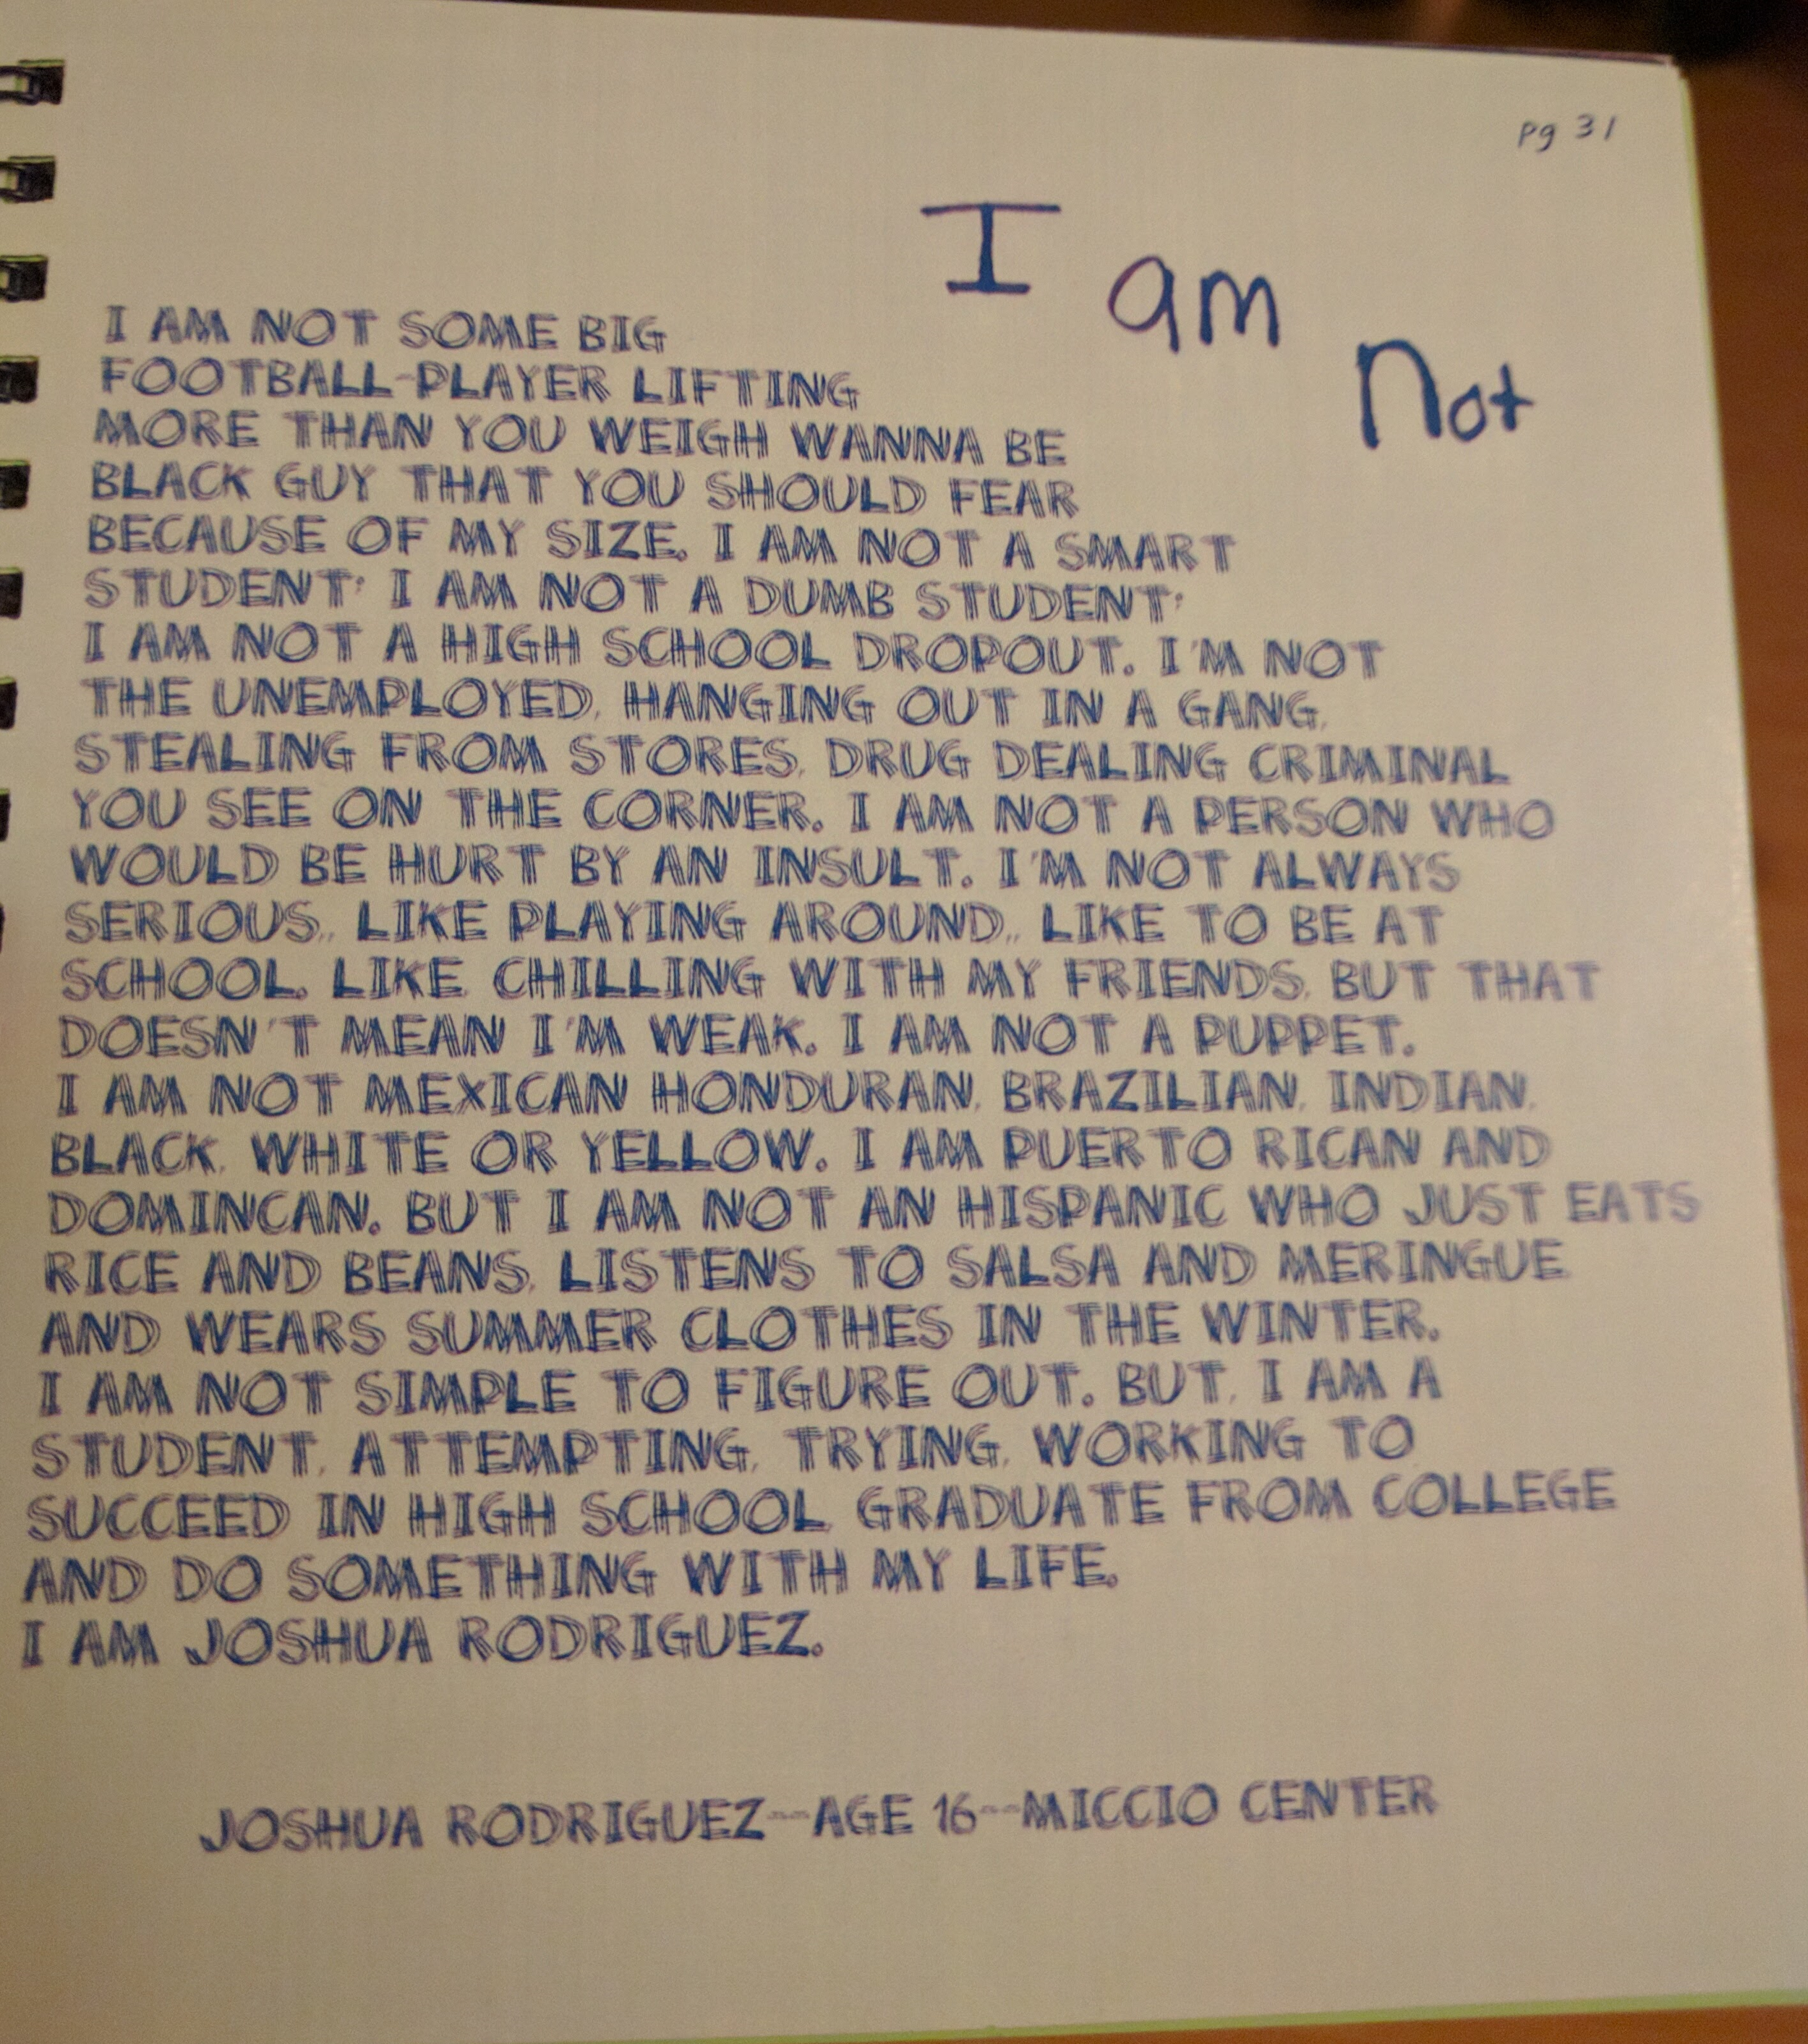 pg 31
I am Not
I AM NOT SOME BIG
FOOTBALL-PLAYER LIFTING
MORE THAN YOU WEIGH WANNA BE
BLACK GUY THAT YOU SHOULD FEAR
BECAUSE OF MY SIZE. I AM NOT A SMART
STUDENT; I AM NOT A DUMB STUDENT;
I AM NOT A HIGH SCHOOL DROPOUT. I'M NOT
THE UNEMPLOYED, HANGING OUT IN A GANG,
STEALING FROM STORES, DRUG DEALING CRIMINAL
YOU SEE ON THE CORNER. I AM NOT A PERSON WHO
WOULD BE HURT BY AN INSULT. I'M NOT ALWAYS
SERIOUS,, LIKE PLAYING AROUND,, LIKE TO BE AT
SCHOOL, LIKE CHILLING WITH MY FRIENDS, BUT THAT
DOESN'T MEAN I'M WEAK. I AM NOT A PUPPET.
I AM NOT MEXICAN HONDURAN, BRAZILIAN, INDIAN,
BLACK, WHITE OR YELLOW. I AM PUERTO RICAN AND
DOMINCAN. BUT I AM NOT AN HISPANIC WHO JUST EATS
RICE AND BEANS, LISTENS TO SALSA AND MERINGUE
AND WEARS SUMMER CLOTHES IN THE WINTER.
I AM NOT SIMPLE TO FIGURE OUT. BUT, I AM A
STUDENT, ATTEMPTING, TRYING, WORKING TO
SUCCEED IN HIGH SCHOOL GRADUATE FROM COLLEGE
AND DO SOMETHING WITH MY LIFE.
I AM JOSHUA RODRIGUEZ.
JOSHUA RODRIGUEZ--AGE 16--MICCIO CENTER